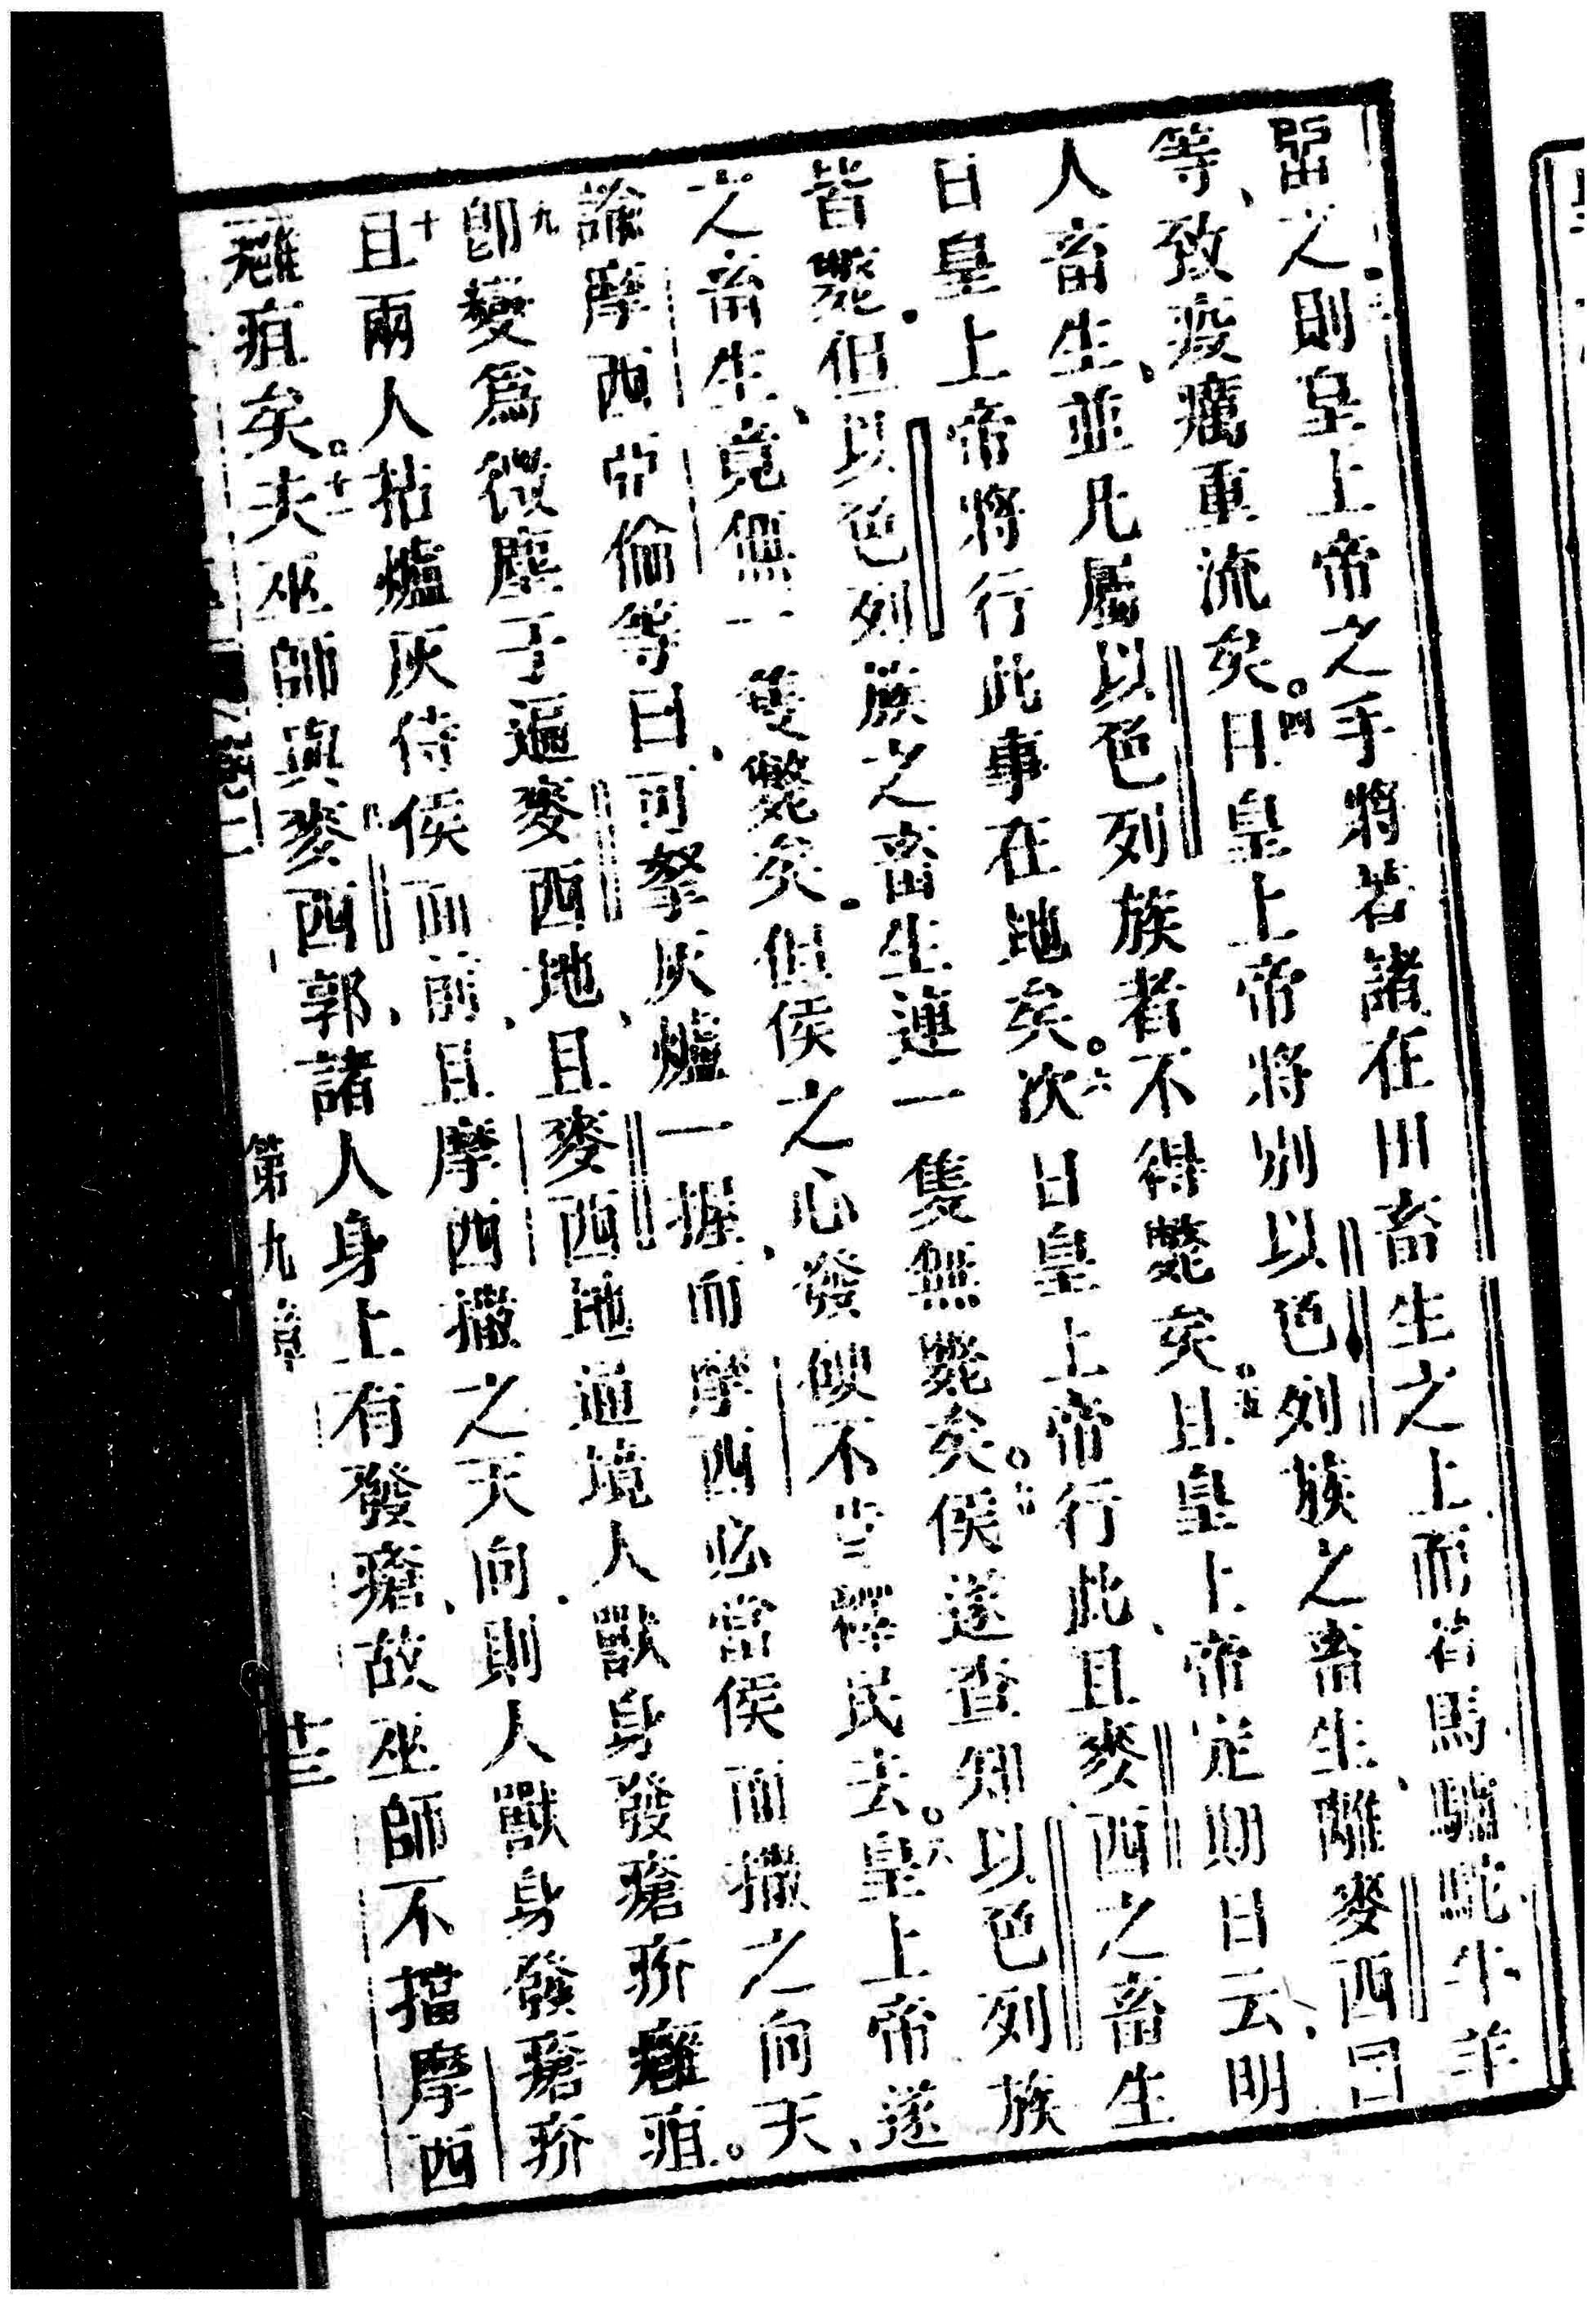 留之則皇上帝之手將若諸在田畜生之上而若馬驢駝牛羊
等、致疫癘重流矣。四且皇上帝將別以色列族之畜生、離麥西
人畜生、並凡屬以色列族者不得斃矣。五且皇上帝定期日云、明
日皇上帝將行此事在地矣。六次日皇上帝行此、且麥西之畜生
皆斃.但以色列族之畜生連一隻無斃矣。七侯遂查知以色列族
之畜生、竟無一隻斃矣.但侯之心發硬不肯釋民去。八皇上帝遂
諭摩西亞倫等曰、可拏灰爐一握、而摩西必當侯而撒之向天、
九卽變爲微塵子遍麥西地、且麥西地通境人獸身發瘡疥癰疽。
十且兩人拈爐灰侍侯而前、且摩西撒之天向.則人獸身發瘡疥
癰疽矣。十一夫巫師與麥西郭、諸人身上有發瘡、故巫師不擋摩西
第九章 十三